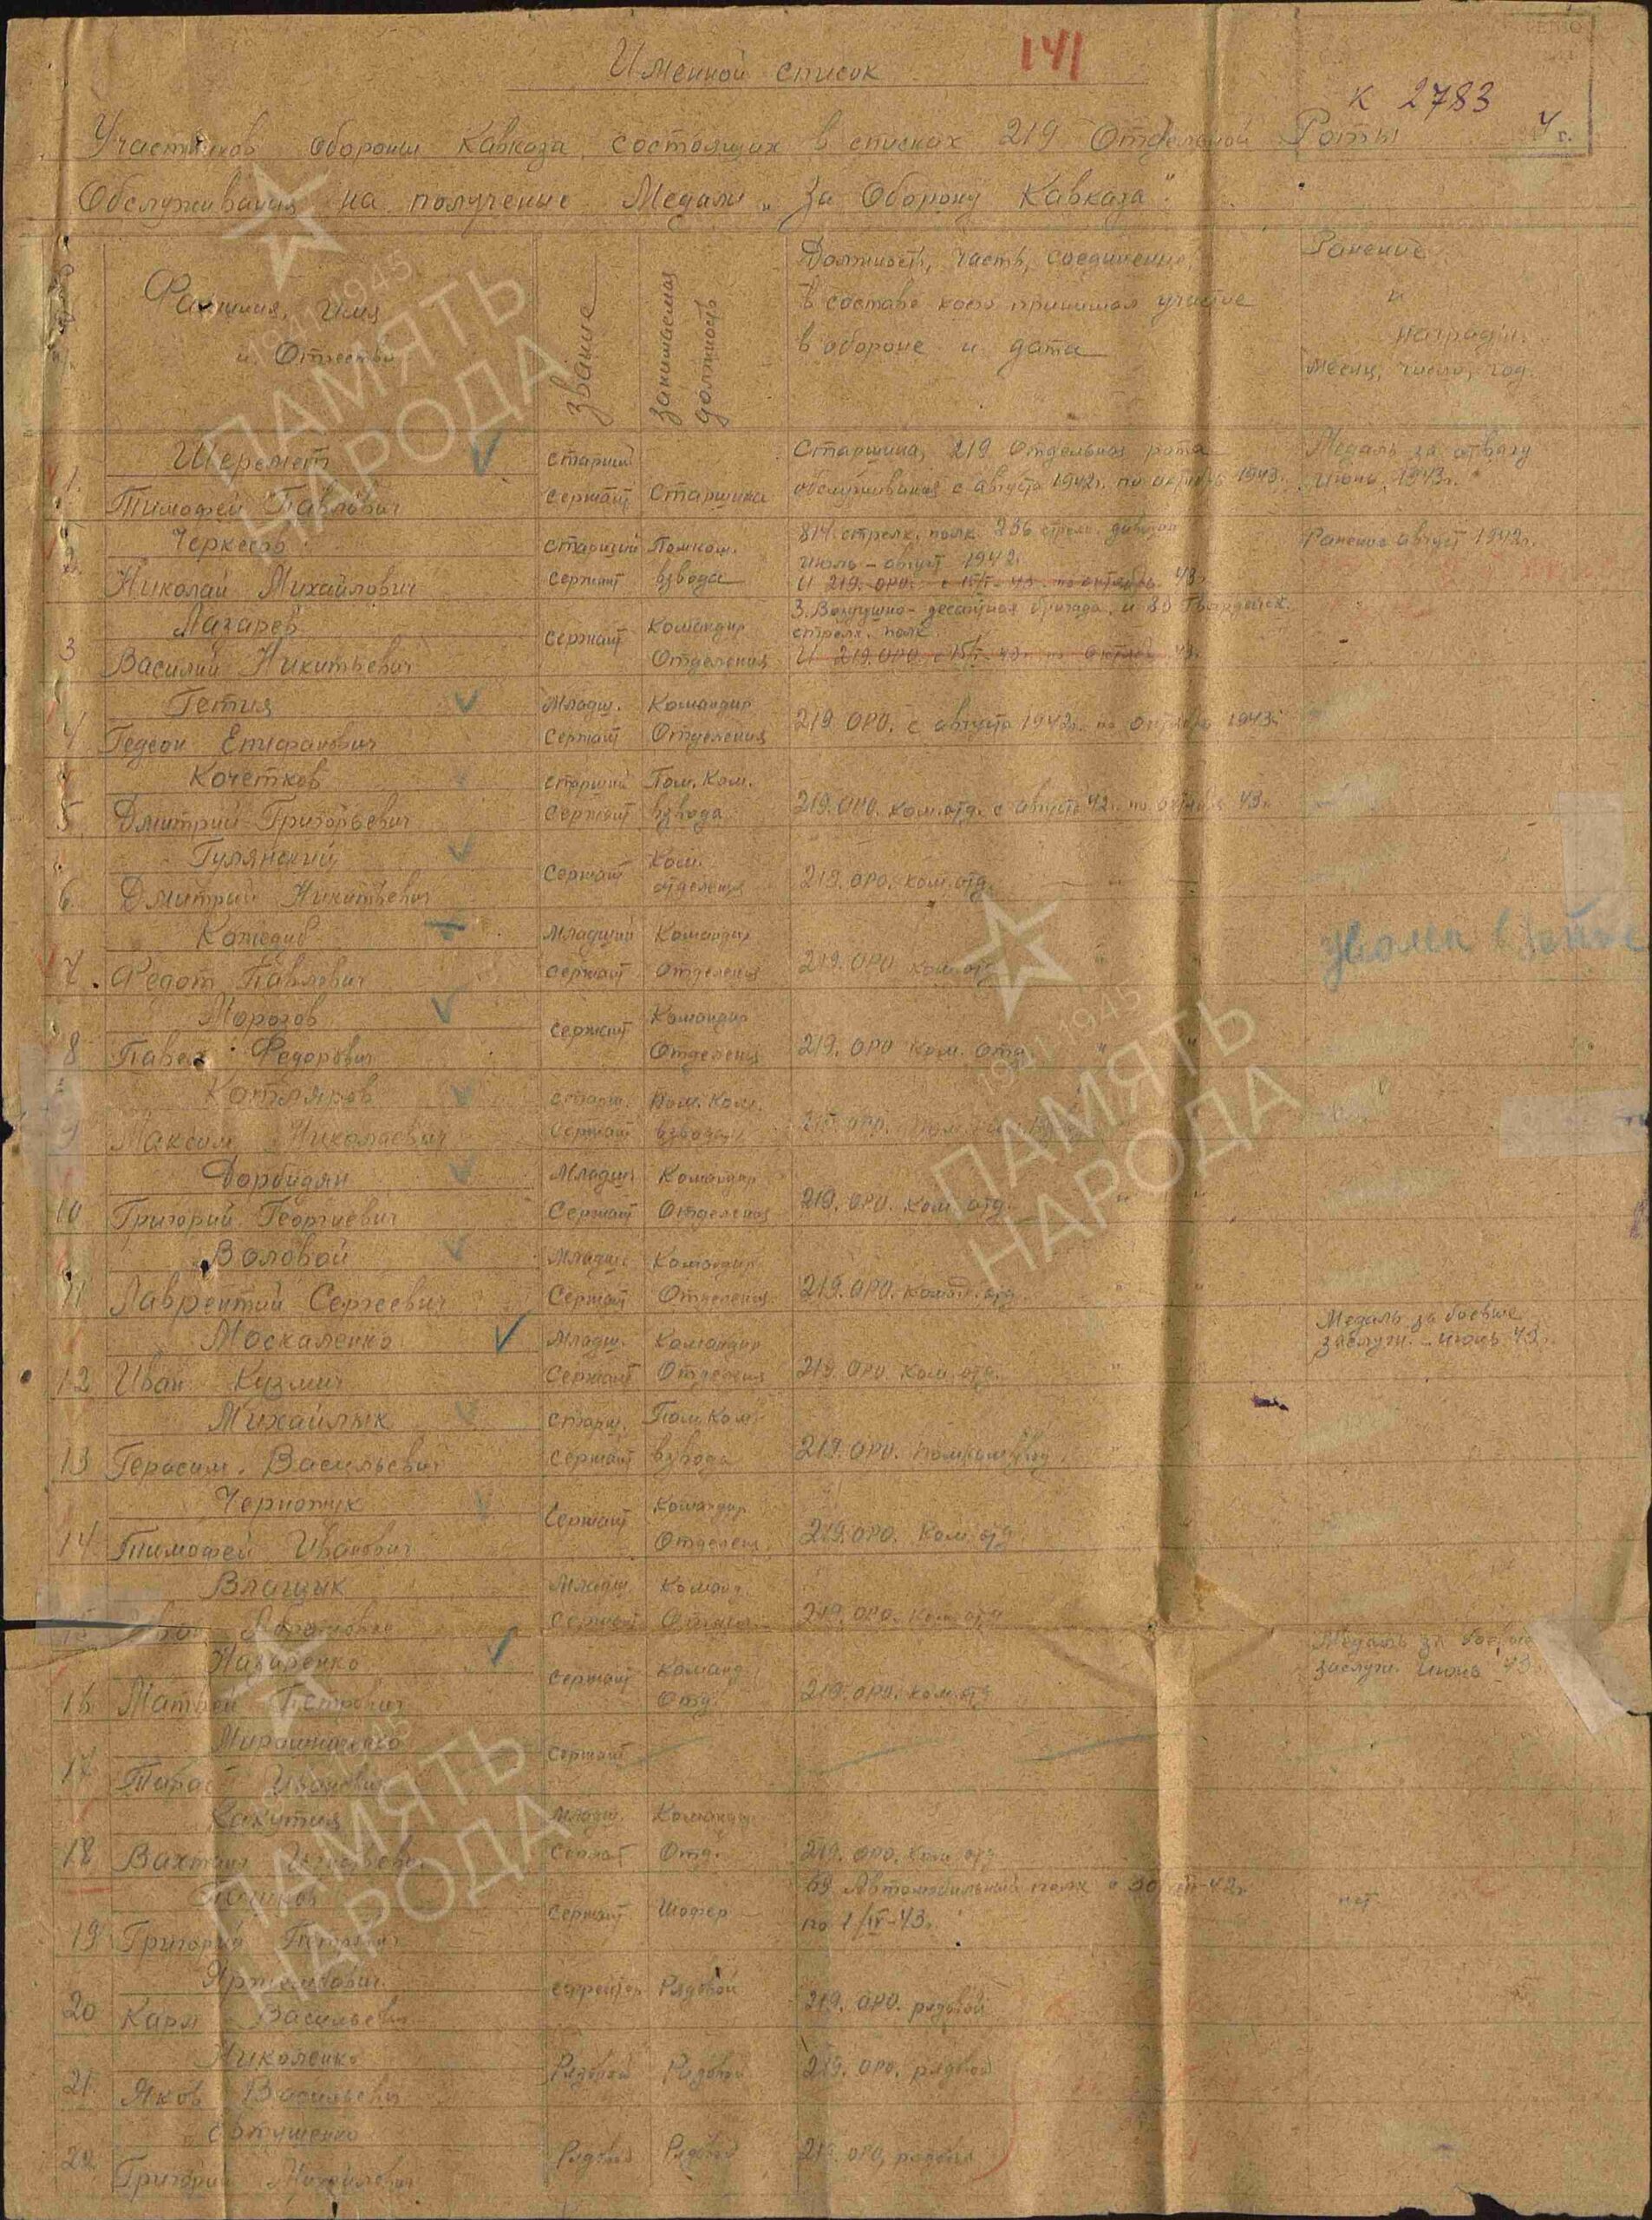 Именной список
141
К 2783
4 г.
Участников обороны Кавказа, состоящих в списках 219 Отдельной Роты
Обслуживания на получение Медали „За Оборону Кавказа".
Фамилия, Имя и Отчество
звание
занимаемая должность
Должность, часть, соединение,
в составе коего принимал участие
в обороне и дата
Ранение
и
награды.
месяц, число, год.
1. Шеремет
Тимофей Павлович
старший сержант
Старшина
Старшина, 219 Отдельная рота
обслуживания с августа 1942г. по октябрь 1943.
Медаль за отвагу
июнь 1943г.
2. Черкесов
Николай Михайлович
старший сержант
Помком. взвода
814 стрелк. полк 236 стрелк. дивизии
июль - август 1942г.
И 219. ОРО. по октябрь 43г.
Ранение август 1942г.
3 Лазарев
Василий Никитьевич
сержант
Командир Отделения
3. Воздушно-десантная бригада и 80 Гвардейск.
стрелк. полк.
И 219. ОРО. 43г.
4 Гетия
Гедеон Епифанович
Младш. Сержант
Командир Отделения
219 ОРО. с августа 1942г. по октябрь 1943г.
5 Кочетков
Дмитрий Григорьевич
старший Сержант
Пом. Ком. взвода
219. ОРО. ком. отд. с августа 42г. по октябрь 43г.
6. Гулянский
Дмитрий Никитьевич
Сержант
Ком. отделения
219. ОРО. ком. отд. — " —
7. Федот Павлович
Младший сержант
Командир Отделения
219. ОРО ком. отд. " "
8 Морозов
Павел Федорович
сержант
Командир Отделения
219. ОРО ком. отд. " "
9 Котляров
Максим Николаевич
старш. Сержант
Пом. Ком. взвода
219. ОРО.
10 Дорбидян
Григорий Георгиевич
Младш. Сержант
Командир Отделения
219. ОРО. ком. отд. " "
11 Воловой
Лаврентий Сергеевич
Младш. Сержант
Командир Отделения
219. ОРО. команд. отд. " "
12 Москаленко
Иван Кузмич
Младш. Сержант
Командир Отделения
219 ОРО ком. отд. "
Медаль за боевые
заслуги. - июнь 43г.
13 Михайлык
Герасим Васильевич
старш. сержант
Пом. Ком. взвода
219. ОРО. помкомвзвод. "
14 Тимофей Иванович
Сержант
командир Отделения
219. ОРО. Ком. отд.
15 Влащик
Младш. Сержант
Команд. Отдел.
219. ОРО. ком. отд
16 Назаренко
Матвей Петрович
сержант
Команд. Отд.
219. ОРО. ком. отд
Медаль за боевые
заслуги. Июнь 43
17 Мирошниченко
Тарас Иванович
сержант
18 Какутия
Вахтанг
Младш. Сержант
Командир. Отд.
219. ОРО. ком. отд
19 Григорий Петрович
Сержант
Шофер
Автомобильный полк 42г.
по 1/IV-43г.
нет
20 Карл Васильевич
ефрейтор
Рядовой
219. ОРО. рядовой
21. Николенко
Яков Васильевич
Рядовой
Рядовой
219. ОРО. рядовой
22. Григорий Михайлович
Рядовой
Рядовой
219. ОРО, рядовой
1941 1945
ПАМЯТЬ
НАРОДА
1941 1945
ПАМЯТЬ
НАРОДА
1941 1945
ПАМЯТЬ
НАРОДА